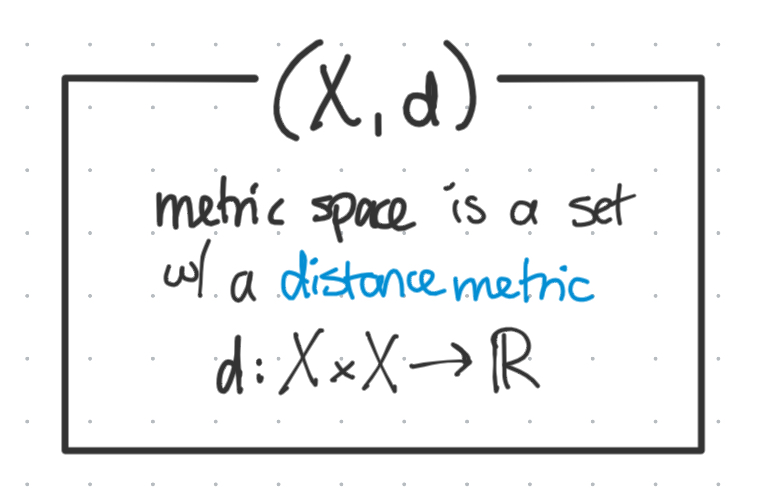 (X, d)
metric space is a set
w/ a distance metric
d: X × X → ℝ